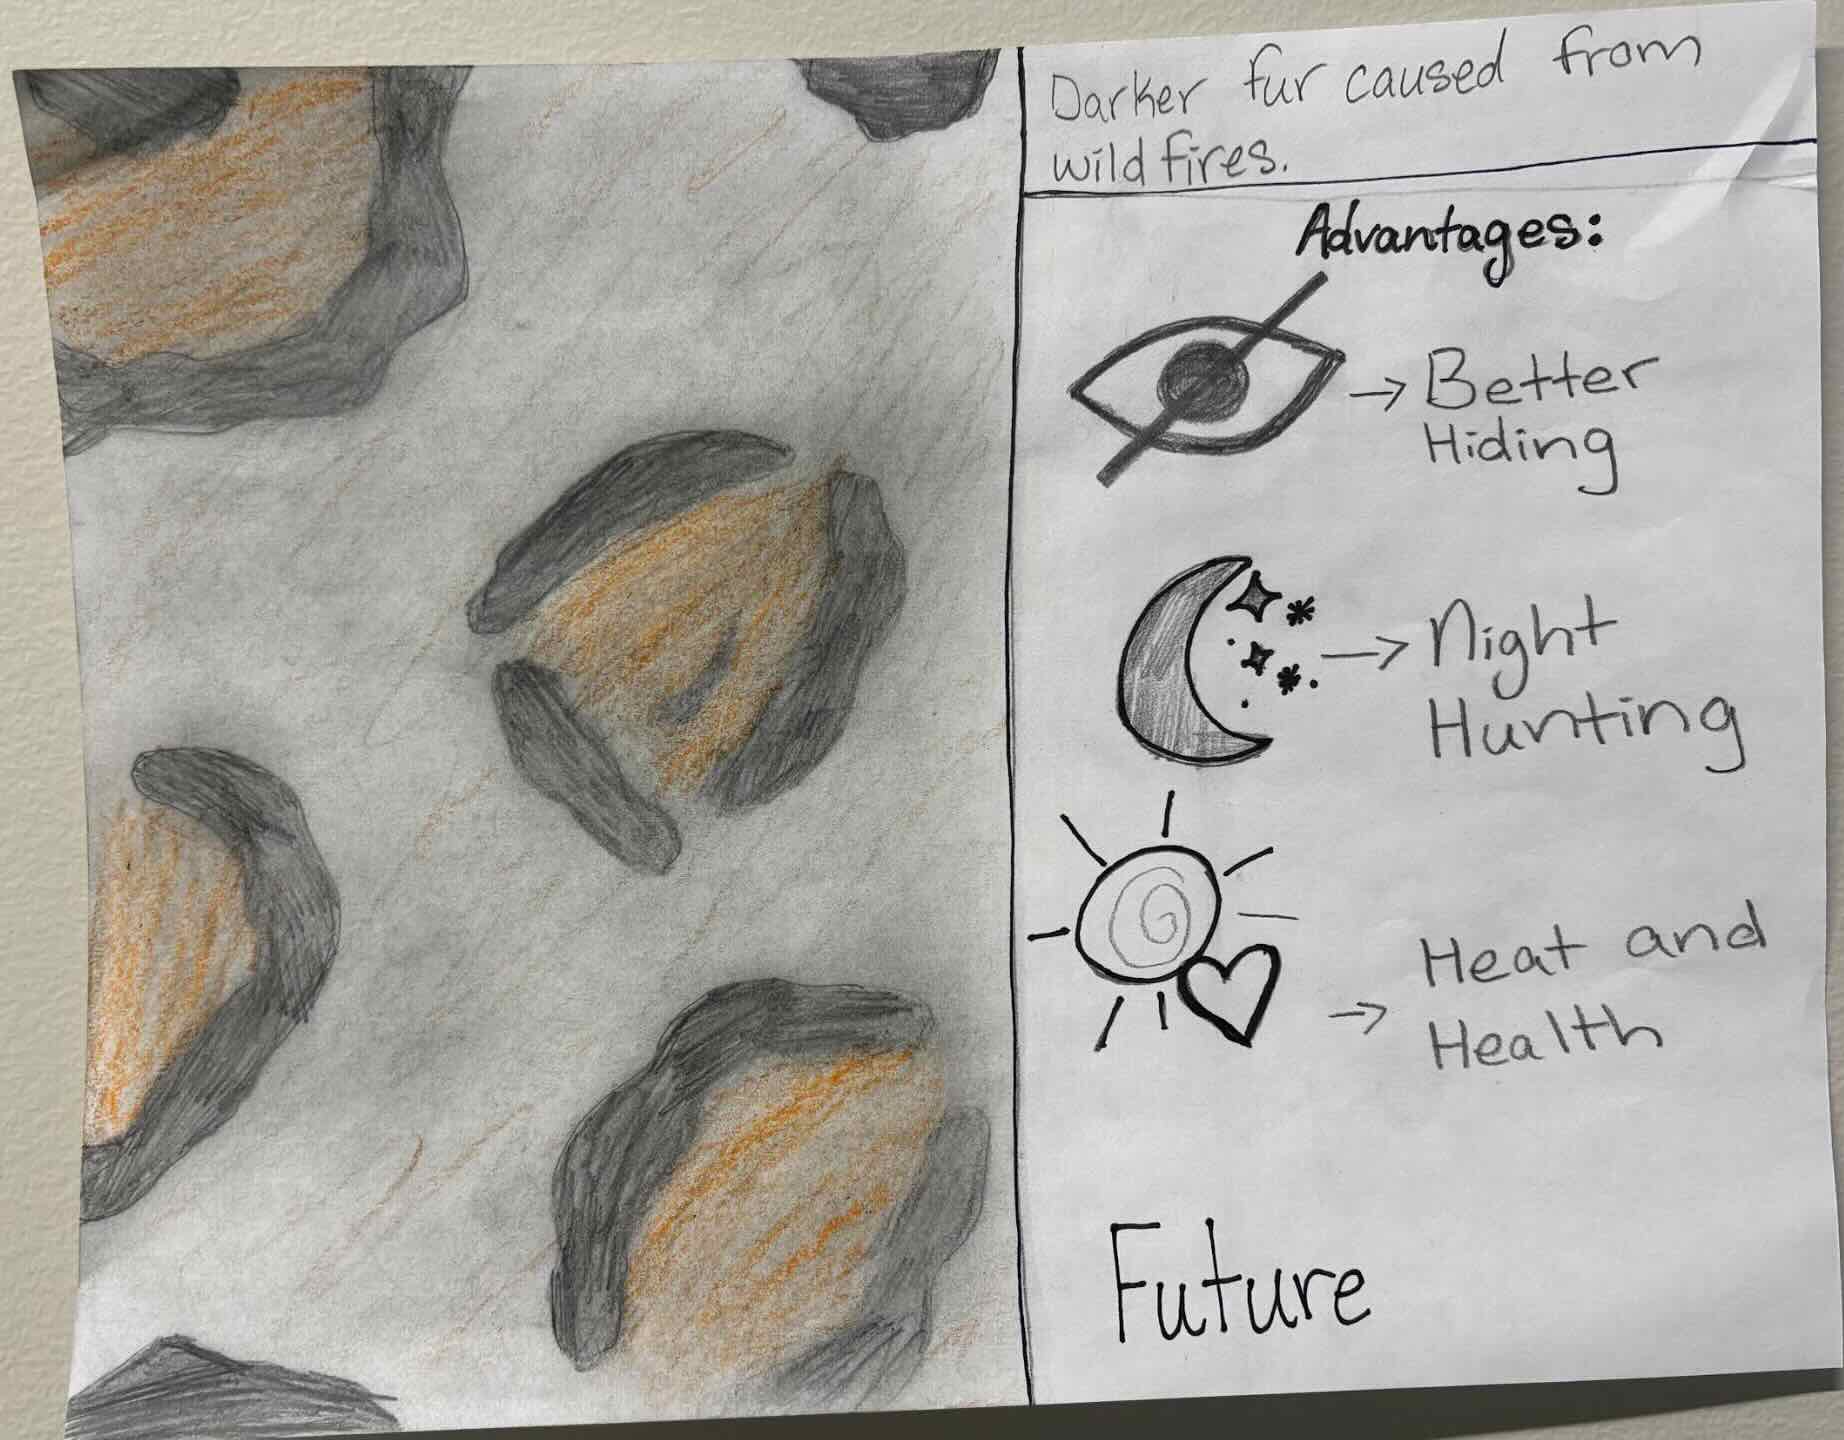 Darker fur caused from
wild fires.
Advantages:
→ Better
Hiding
→ Night
Hunting
→ Heat and
Health
Future